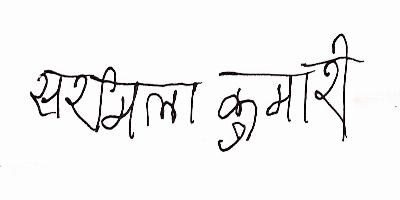 सरमिला कुमारी